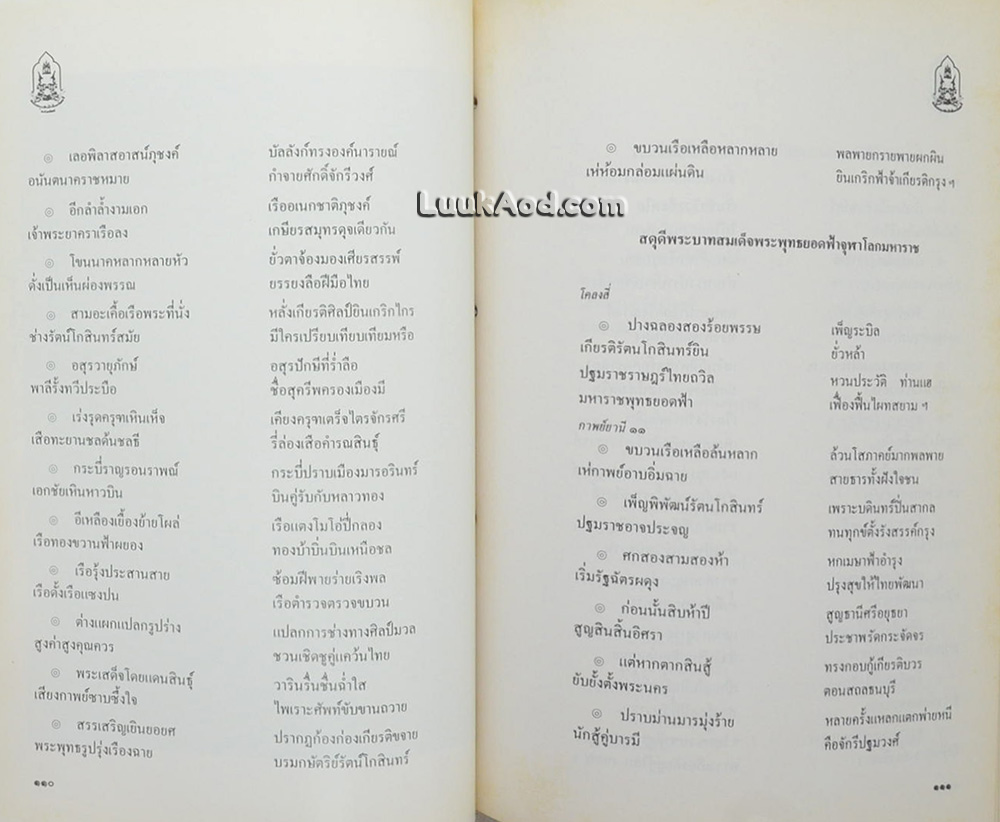 ๏ เลอพิลาสอาสน์ภุชงค์ บัลลังก์ทรงองค์นารายณ์
อนันตนาคราชหมาย กำจายศักดิ์จักรีวงศ์
๏ อีกลำล้ำงามเอก เรืออเนกชาติภุชงค์
เจ้าพระยาคราเรือลง เกษียรสมุทรดุจเดียวกัน
๏ โขนนาคหลากหลายหัว ยั่วตาจ้องมองเศียรสรรพ์
ดั่งเป็นเห็นผ่องพรรณ ยรรยงลือฝีมือไทย
๏ สามอะเคื้อเรือพระที่นั่ง หลั่งเกียรติศิลป์ยินเกริกไกร
ช่างรัตน์โกสินทร์สมัย มีใครเปรียบเทียบเทียมหรือ
๏ อสุรวายุภักษ์ อสุรปักษีที่ร่ำลือ
พาลีรั้งทวีประบือ ชื่อสุครีพครองเมืองมี
๏ เร่งรุดครุฑเหินเห็จ เคียงครุฑเตร็จไตรจักรศรี
เสือทะยานชลดันชลธี รี่ล่องเสือคำรณสินธุ์
๏ กระบี่ราญรอนราพณ์ กระบี่ปราบเมืองมารอรินทร์
เอกชัยเหินหาวบิน บินคู่รับกับหลาวทอง
๏ อีเหลืองเยื้องย้ายโผล่ เรือแตงโมโอ้ปี่กลอง
เรือทองขวานฟ้าผยอง ทองบ้าบิ่นบินเหนือชล
๏ เรือรุ้งประสานสาย ซ้อมฝีพายร่ายเริงพล
เรือดั้งเรือแซงปน เรือตำรวจตรวจขบวน
๏ ต่างแผกแปลกรูปร่าง แปลกการช่างทางศิลป์มวล
สูงค่าสูงคุณควร ชวนเชิดชูคู่แคว้นไทย
๏ พระเสด็จโดยแดนสินธุ์ วารินรื่นชื่นฉ่ำใส
เสียงกาพย์ซาบซึ้งใจ ไพเราะศัพท์ขับขานถวาย
๏ สรรเสริญเยินยอยศ ปรากฏก้องก่องเกียรติขจาย
พระพุทธรูปรุ่งเรืองฉาย บรมกษัตริย์รัตน์โกสินทร์
๑๑๐
๏ ขบวนเรือเหลือหลากหลาย พลพายกรายพายผกผิน
เห่ห้อมกล่อมแผ่นดิน ยินเกริกฟ้าจ้าเกียรติกรุง ฯ
LuukAod.com
สดุดีพระบาทสมเด็จพระพุทธยอดฟ้าจุฬาโลกมหาราช
โคลงสี่
๏ ปางฉลองสองร้อยพรรษ เพ็ญระบิล
เกียรติรัตนโกสินทร์ยิน ยั่วหล้า
ปฐมราชราษฎร์ไทยถวิล หวนประวัติ ท่านแฮ
มหาราชพุทธยอดฟ้า เฟื่องฟื้นไผทสยาม ฯ
กาพย์ยานี ๑๑
๏ ขบวนเรือเหลือล้นหลาก ล้วนโสภาคย์มากพลพาย
เห่กาพย์อาบอิ่มฉาย สายธารทั้งฝังใจชน
๏ เพ็ญพิพัฒน์รัตนโกสินทร์ เพราะบดินทร์ปิ่นสากล
ปฐมราชอาจประจญ ทนทุกข์ตั้งรังสรรค์กรุง
๏ ศกสองสามสองห้า หกเมษาฟ้าอำรุง
เริ่มรัฐฉัตรผดุง ปรุงสุขให้ไทยพัฒนา
๏ ก่อนนั้นสิบห้าปี สูญธานีศรีอยุธยา
สูญสินสิ้นอิศรา ประชาพรัดกระจัดจร
๏ แต่หากตากสินสู้ ทรงกอบกู้เกียรติบวร
ยับยั้งตั้งพระนคร ตอนสถลธนบุรี
๏ ปราบม่านมารมุ่งร้าย หลายครั้งแหลกแตกพ่ายหนี
นักสู้คู่บารมี คือจักรีปฐมวงศ์
๑๑๑